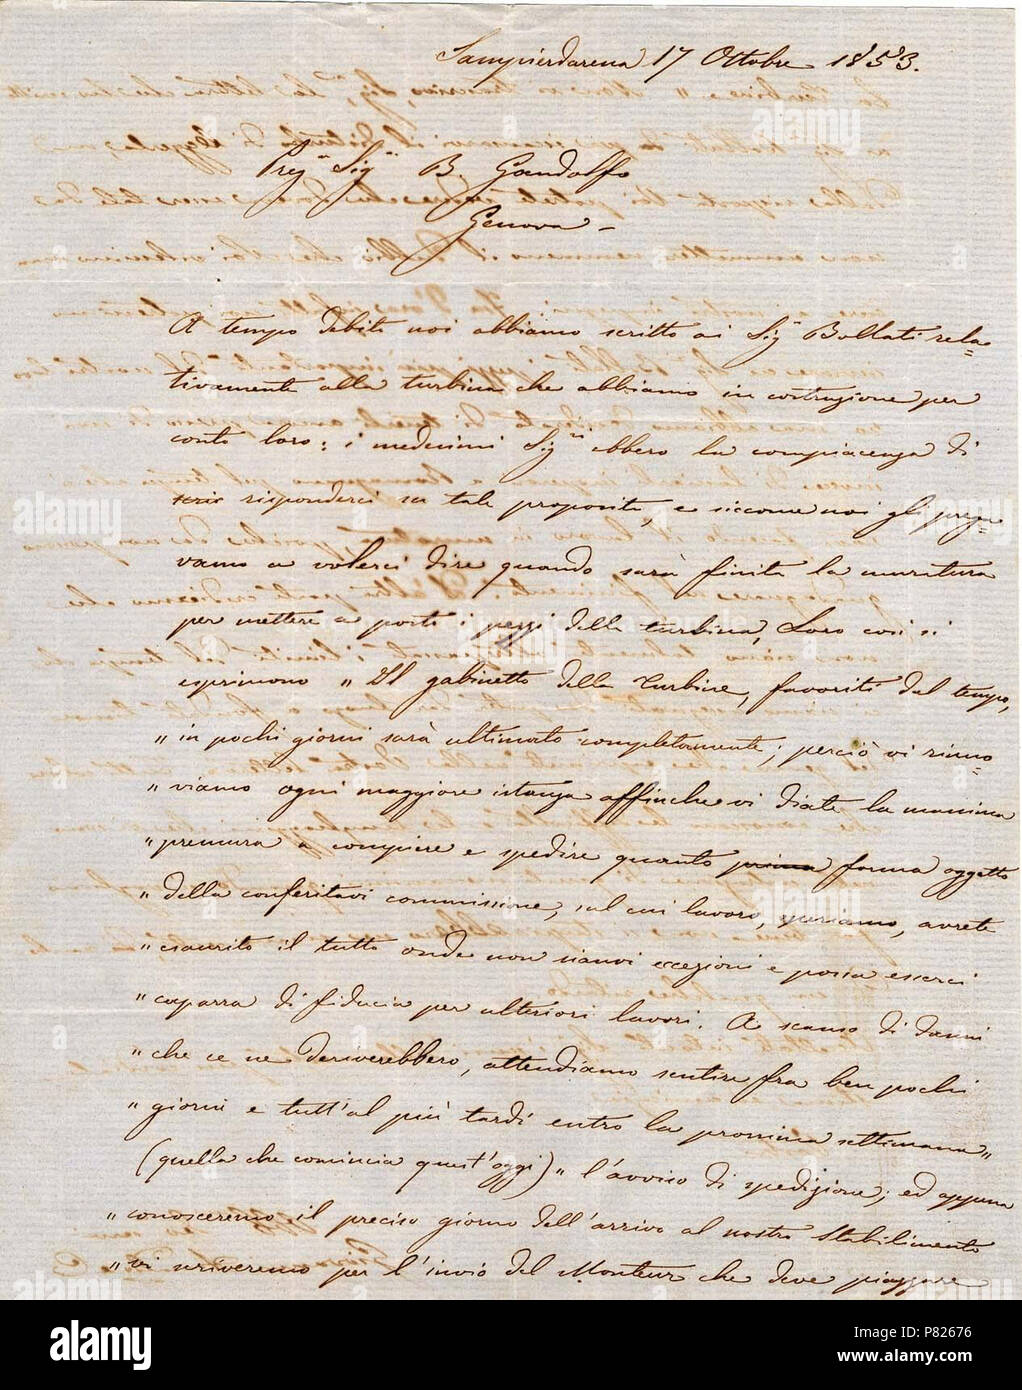 Sampierdarena 17 Ottobre 1853.
Preg. Sig. B. Gandolfo
Genova -
A tempo debito noi abbiamo scritto ai Sig. Bollati rela=
tivamente alla turbina che abbiamo in costruzione per
conto loro: i medesimi Sig.ri ebbero la compiacenza di
risponderci su tale proposito, e siccome noi gli prega=
vamo a volerci dire quando sarà finita la muratura
per mettere a posto i pezzi della turbina, Loro così si
esprimono „ Il gabinetto della Turbine, favorito dal tempo,
„ in pochi giorni sarà ultimato completamente; perciò vi rinno=
„ viamo ogni maggiore istanza affinche vi diate la massima
„ premura a compiere e spedire quanto prima forma oggetto
„ della conferitavi commissione, sul cui lavoro, speriamo, avrete
„ esaurito il tutto onde non sianvi eccezioni e possa esserci
„ caparra di fiducia per ulteriori lavori. A scanso di danni
„ che ce ne deriverebbero, attendiamo sentire fra ben pochi
„ giorni e tutt'al più tardi entro la prossima settimana „
(quella che comincia quest'oggi) „ l'avviso di spedizione; ed appena
„ conosceremo il preciso giorno dell'arrivo al nostro Stabilimento
„ vi scriveremo per l'invio del Monteur che deve piazzare
alamy
P82676
www.alamy.com